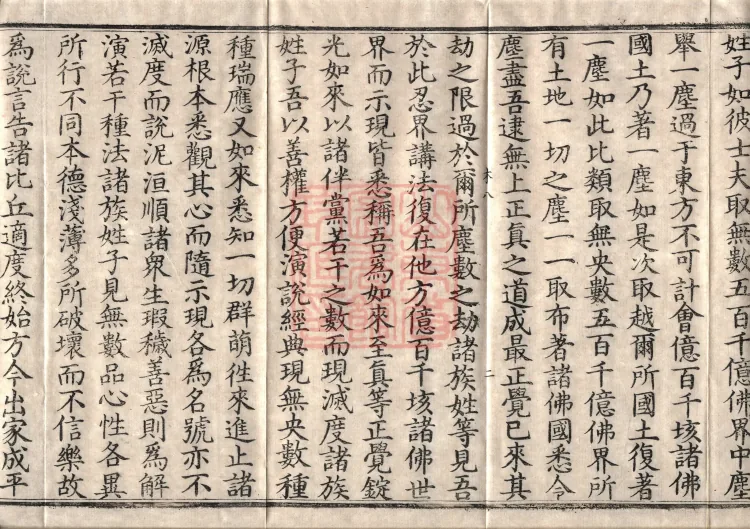 姓子如彼士夫取無數五百千億佛界中塵
舉一塵過于東方不可計會億百千垓諸佛
國土乃著一塵如是次取越爾所國土復著
一塵如此比類取無央數五百千億佛界所
有土地一切之塵一一取布著諸佛國悉令
塵盡吾逮無上正真之道成最正覺已來其
劫之限過於爾所塵數之劫諸族姓等見吾
於此忍界講法復在他方億百千垓諸佛世
界而示現皆悉稱吾為如來至真等正覺錠
光如來以諸伴黨若干之數而現滅度諸族
姓子吾以善權方便演說經典現無央數種
種瑞應又如來悉知一切群萌徃來進止諸
源根本悉觀其心而隨示現各為名號亦不
滅度而說泥洹順諸衆生瑕穢善惡則為解
演若干種法諸族姓子見無數品心性各異
所行不同本德淺薄多所破壞而不信樂故
為說言告諸比丘適度終始方今出家成平